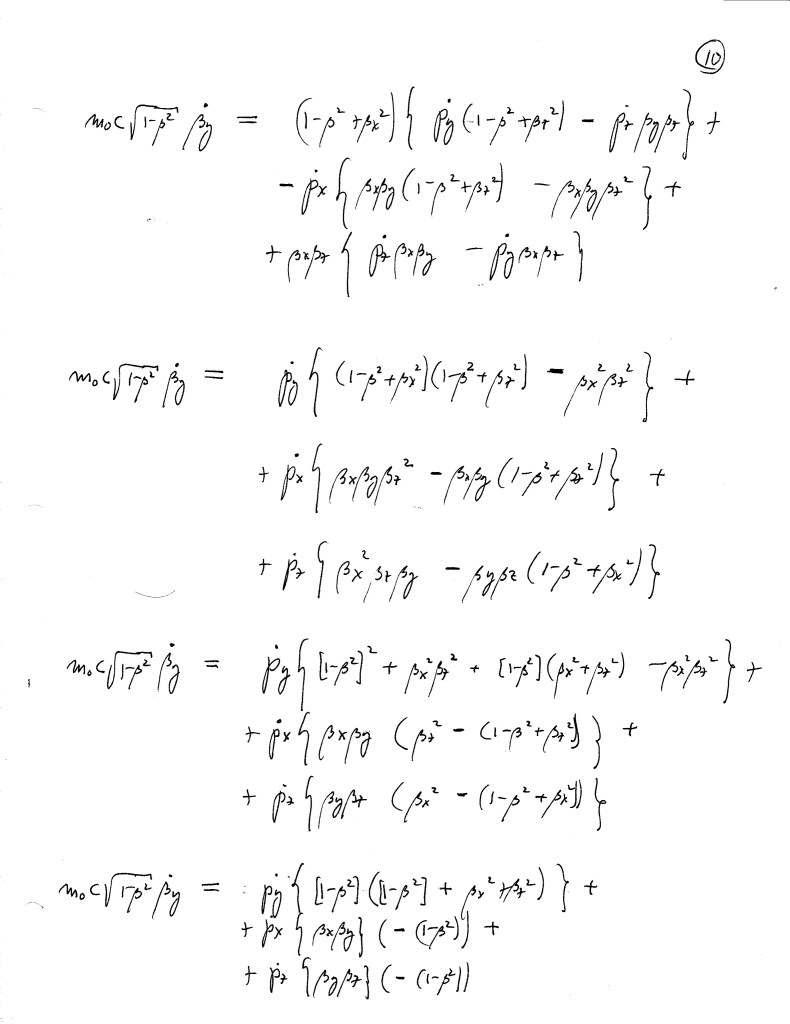 10
m₀c√(1-β²) β̇y = (1-β²+βx²) { ṗy (1-β²+βz²) - ṗz βyβz } +
- ṗx { βxβy (1-β²+βz²) - βxβyβz² } +
+ βxβz { ṗz βxβy - ṗy βxβz }
m₀c√(1-β²) β̇y = ṗy { (1-β²+βx²)(1-β²+βz²) - βx²βz² } +
+ ṗx { βxβyβz² - βxβy (1-β²+βz²) } +
+ ṗz { βx²βzβy - βyβz (1-β²+βx²) }
m₀c√(1-β²) β̇y = ṗy { [1-β²]² + βx²βz² + [1-β²](βx²+βz²) - βx²βz² } +
+ ṗx { βxβy (βz² - (1-β²+βz²)) } +
+ ṗz { βyβz (βx² - (1-β²+βx²)) }
m₀c√(1-β²) β̇y = ṗy { [1-β²]([1-β²] + βx²+βz²) } +
+ ṗx { βxβy } (-(1-β²)) +
+ ṗz { βyβz } (-(1-β²))